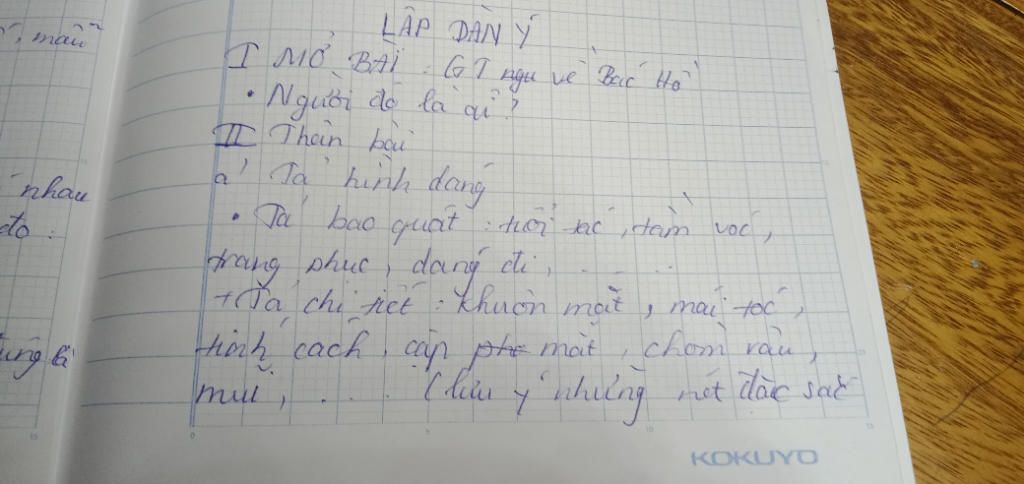 LẬP DÀN Ý
I MỞ BÀI : GT ngu về Bác Hồ
• Người đó là ai?
II Thân bài
a' Tả hình dáng
• Tả bao quát : tuổi tác, tầm vóc,
trang phục, dáng đi, . . . .
+ Tả chi tiết : khuôn mặt, mái tóc,
tính cách, cặp mắt, chòm râu,
mũi, . . . . (lưu ý những nét đặc sắc
, mẫu
nhau
đó :
KOKUYO